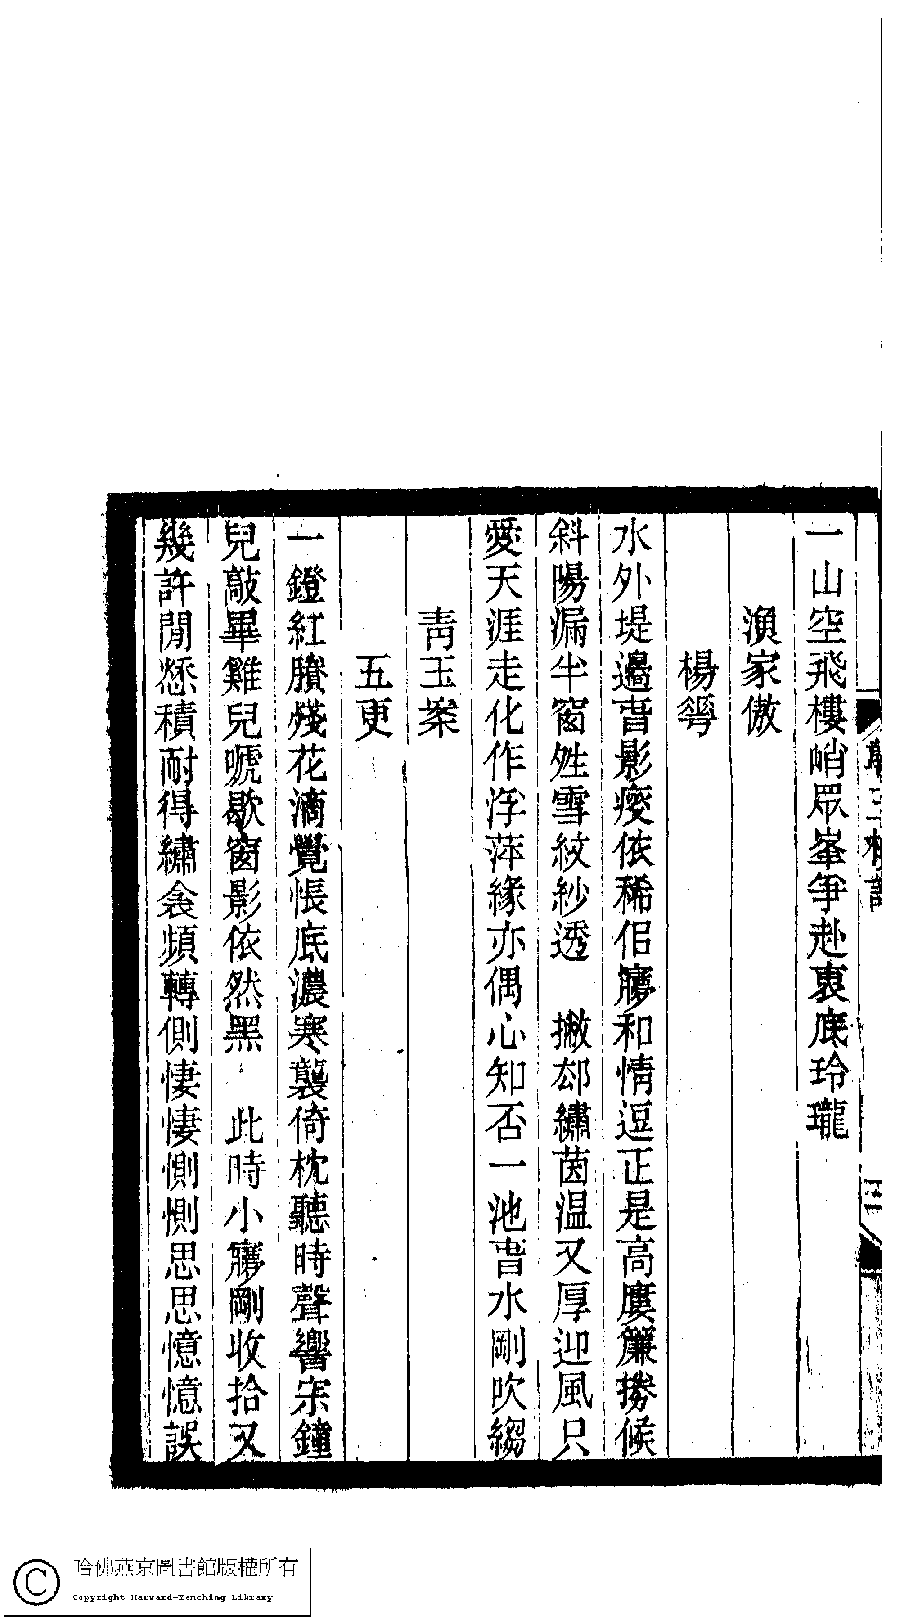 一山空飛樓峭眾峯爭赴裏底玲瓏
漁家傲
楊花
水外堤邊春影瘦依稀侶夢和情逗正是高樓簾捲候
斜陽漏半窗斜雪紋紗透　撇卻繡茵温又厚迎風只
愛天涯走化作浮萍緣亦偶心知否一池春水剛吹縐
青玉案
五更
一鐙紅賸殘花滴覺悵底濃寒襲倚枕聽時聲響宋鐘
兒敲畢雞兒唬歇窗影依然黑　此時小夢剛收拾又
幾許閒愁積耐得繡衾頻轉側悽悽惻惻思思憶憶誤
三
哈佛燕京圖書館版權所有
Copyright Harvard-Yenching Library